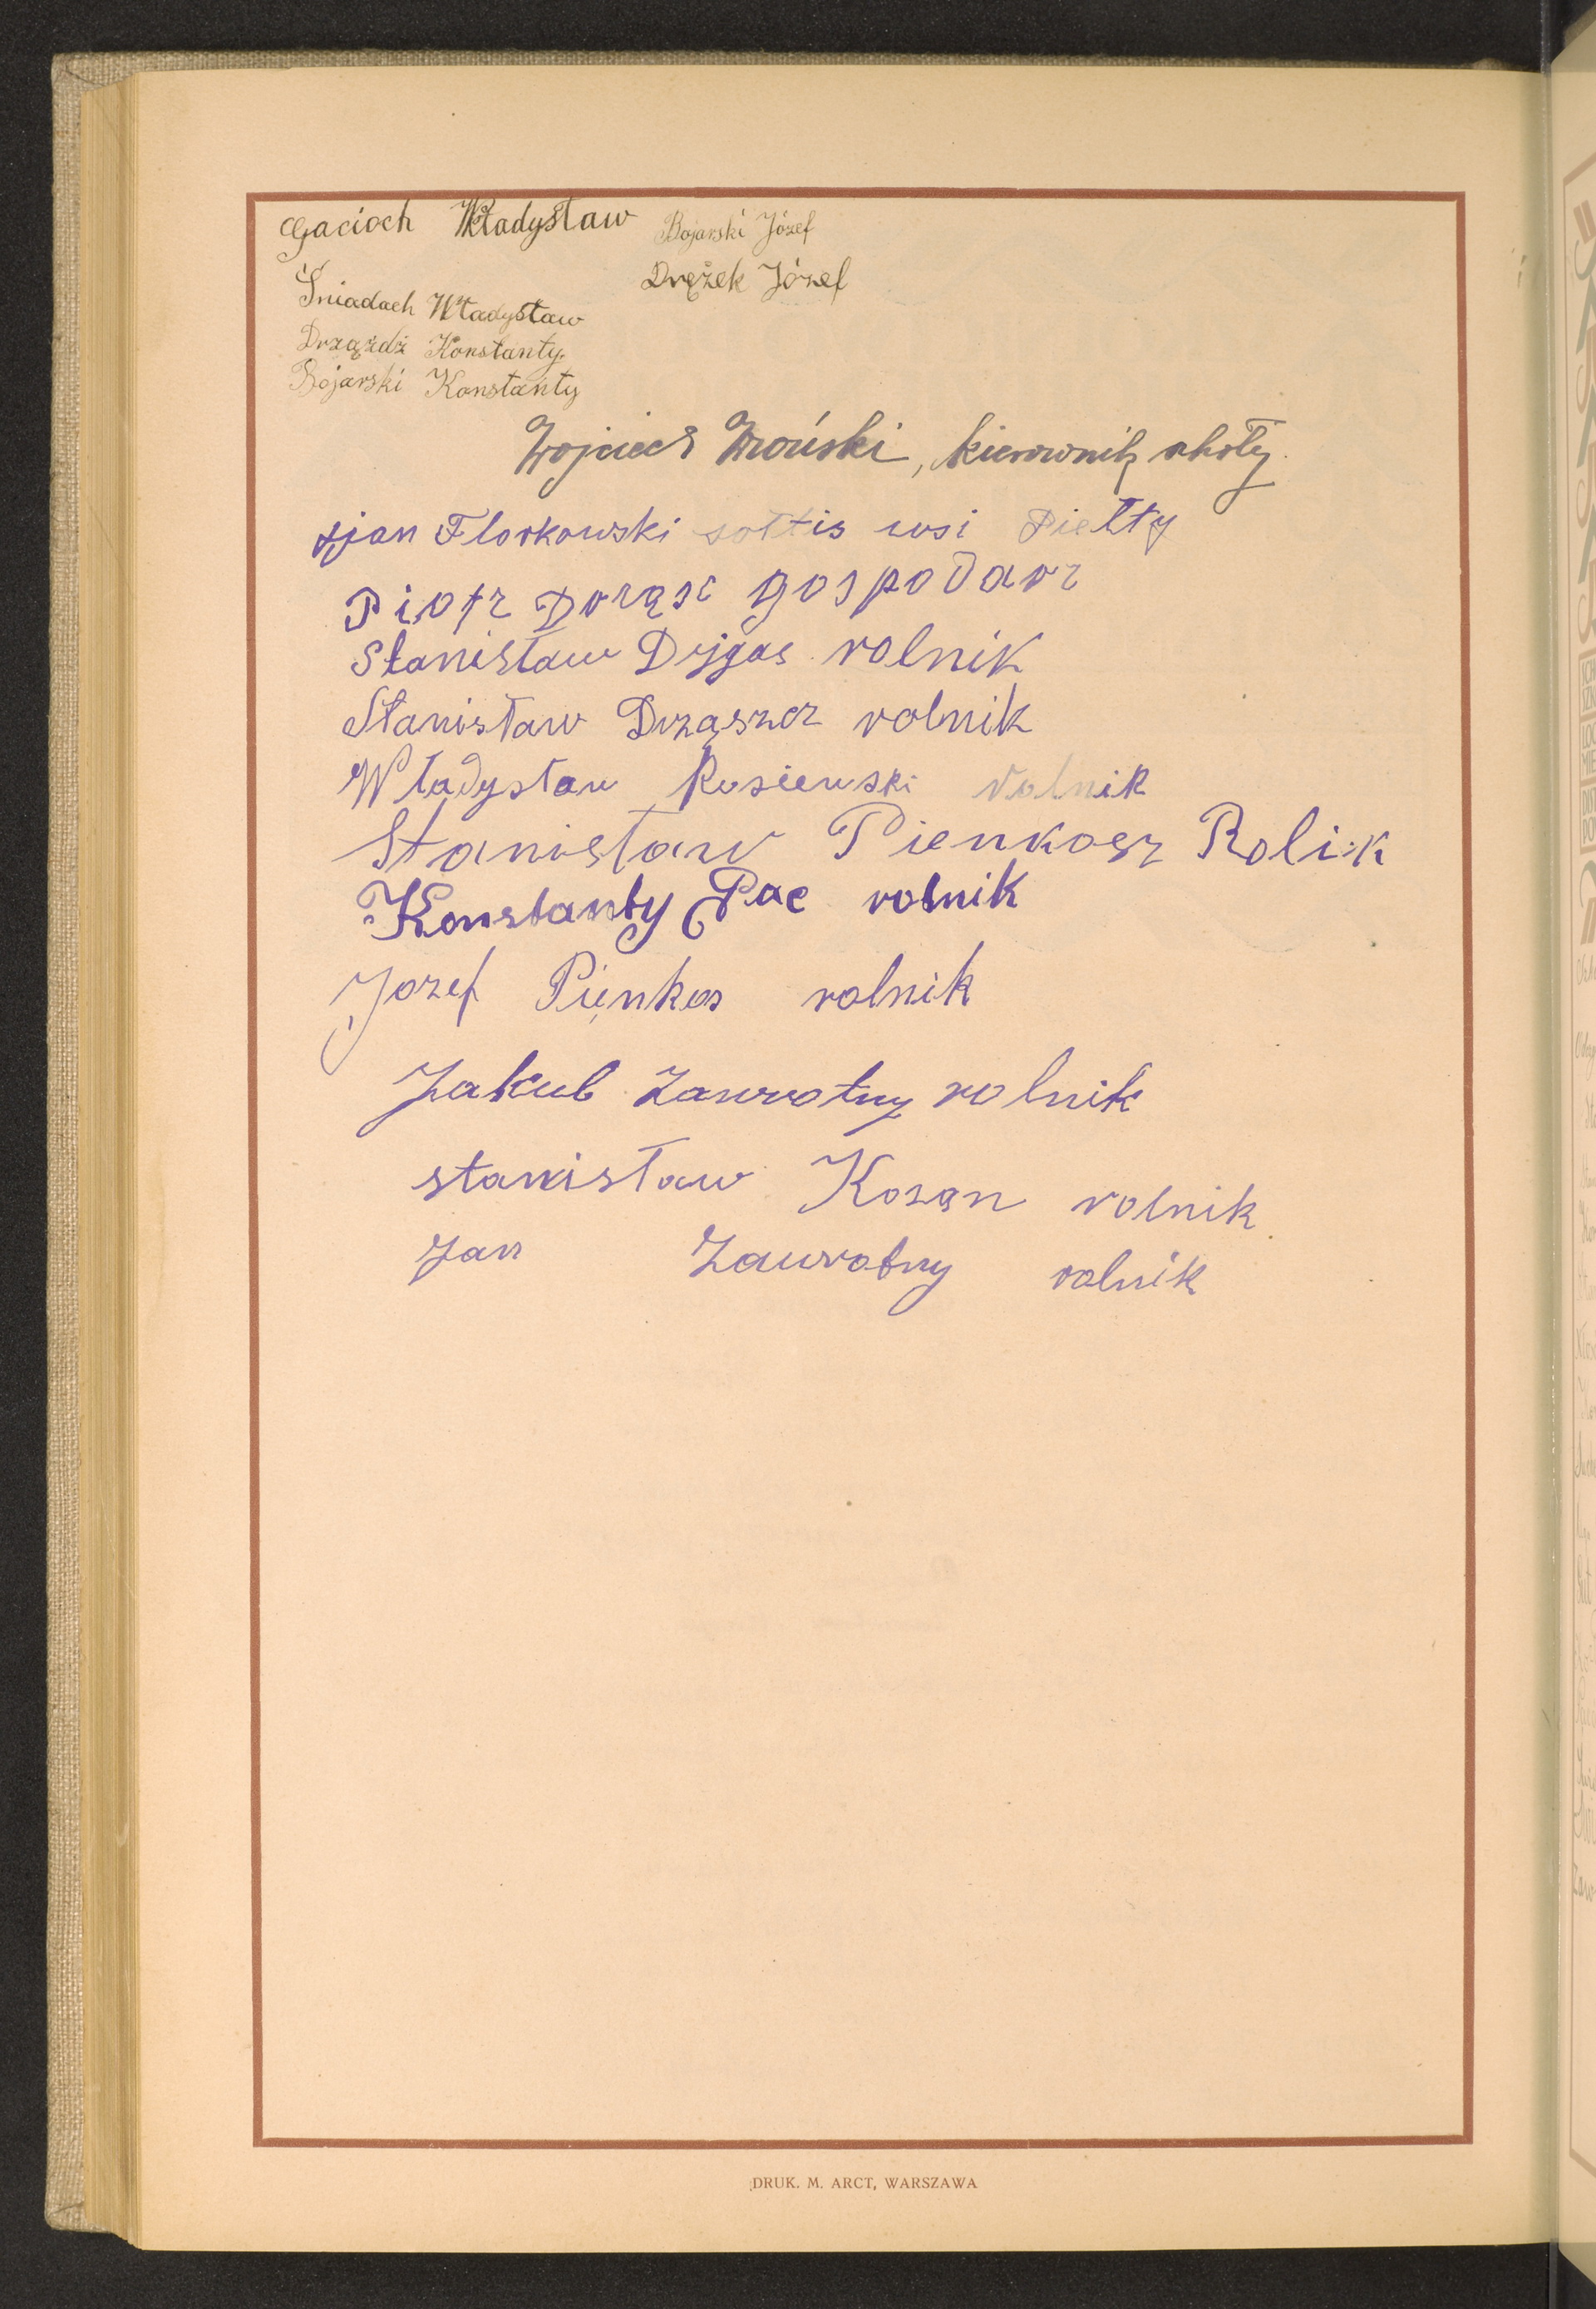 Gacioch Władysław
Śniadach Władysław
Drzążdż Konstanty
Bojarski Konstanty
Bojarski Józef
Drężek Józef
Wojciech Wroński, kierownik szkoły
Jan Florkowski sołtis wsi Piełty
Piotr gospodarz
Stanisław Dyjgas rolnik
Stanisław Drząszcz rolnik
Władysław Rusiewski rolnik
Stanisław Pienkosz Rolik
Konstanty Pac rolnik
Jozef Pienkos rolnik
Jakub Zawrotny rolnik
stanisław Kozan rolnik
Jan Zawrotny rolnik
DRUK. M. ARCT, WARSZAWA